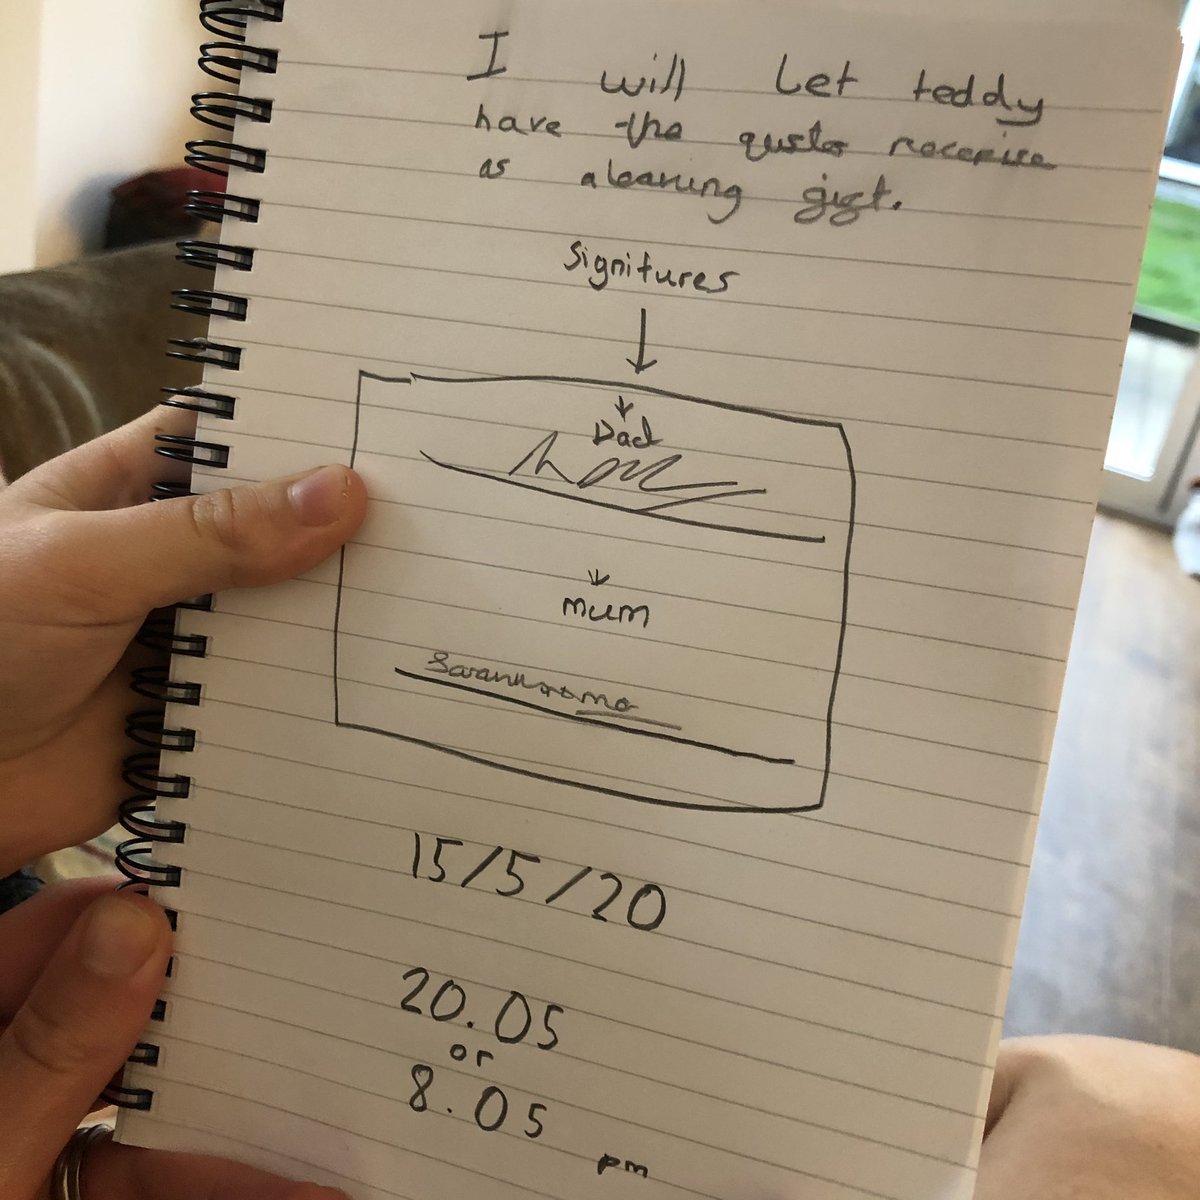 I will let teddy
have the
as aleaving gigt.
Signitures
Dad
mum
15/5/20
20.05
or
8.05
pm